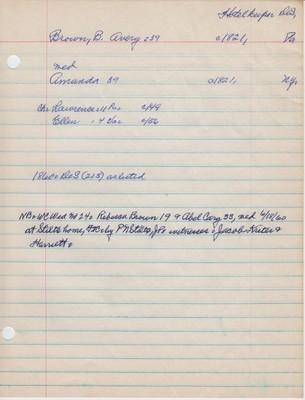 Hotelkeeper DeS,
Brown, B. Avery 39 c1821, Pa
med
Amanda 39 c1821, N.Y.
Ch: Lawrence 11 Pa c/49
Ellen 4 c/56
1860 DeS (213) as listed
NB: WC Wed M 24: Rebecca Brown 19 & Abel Cory 33, med 4/ /60
at Stilts home, by P N Stilts, JP witnesses: Jacob &
Harriett